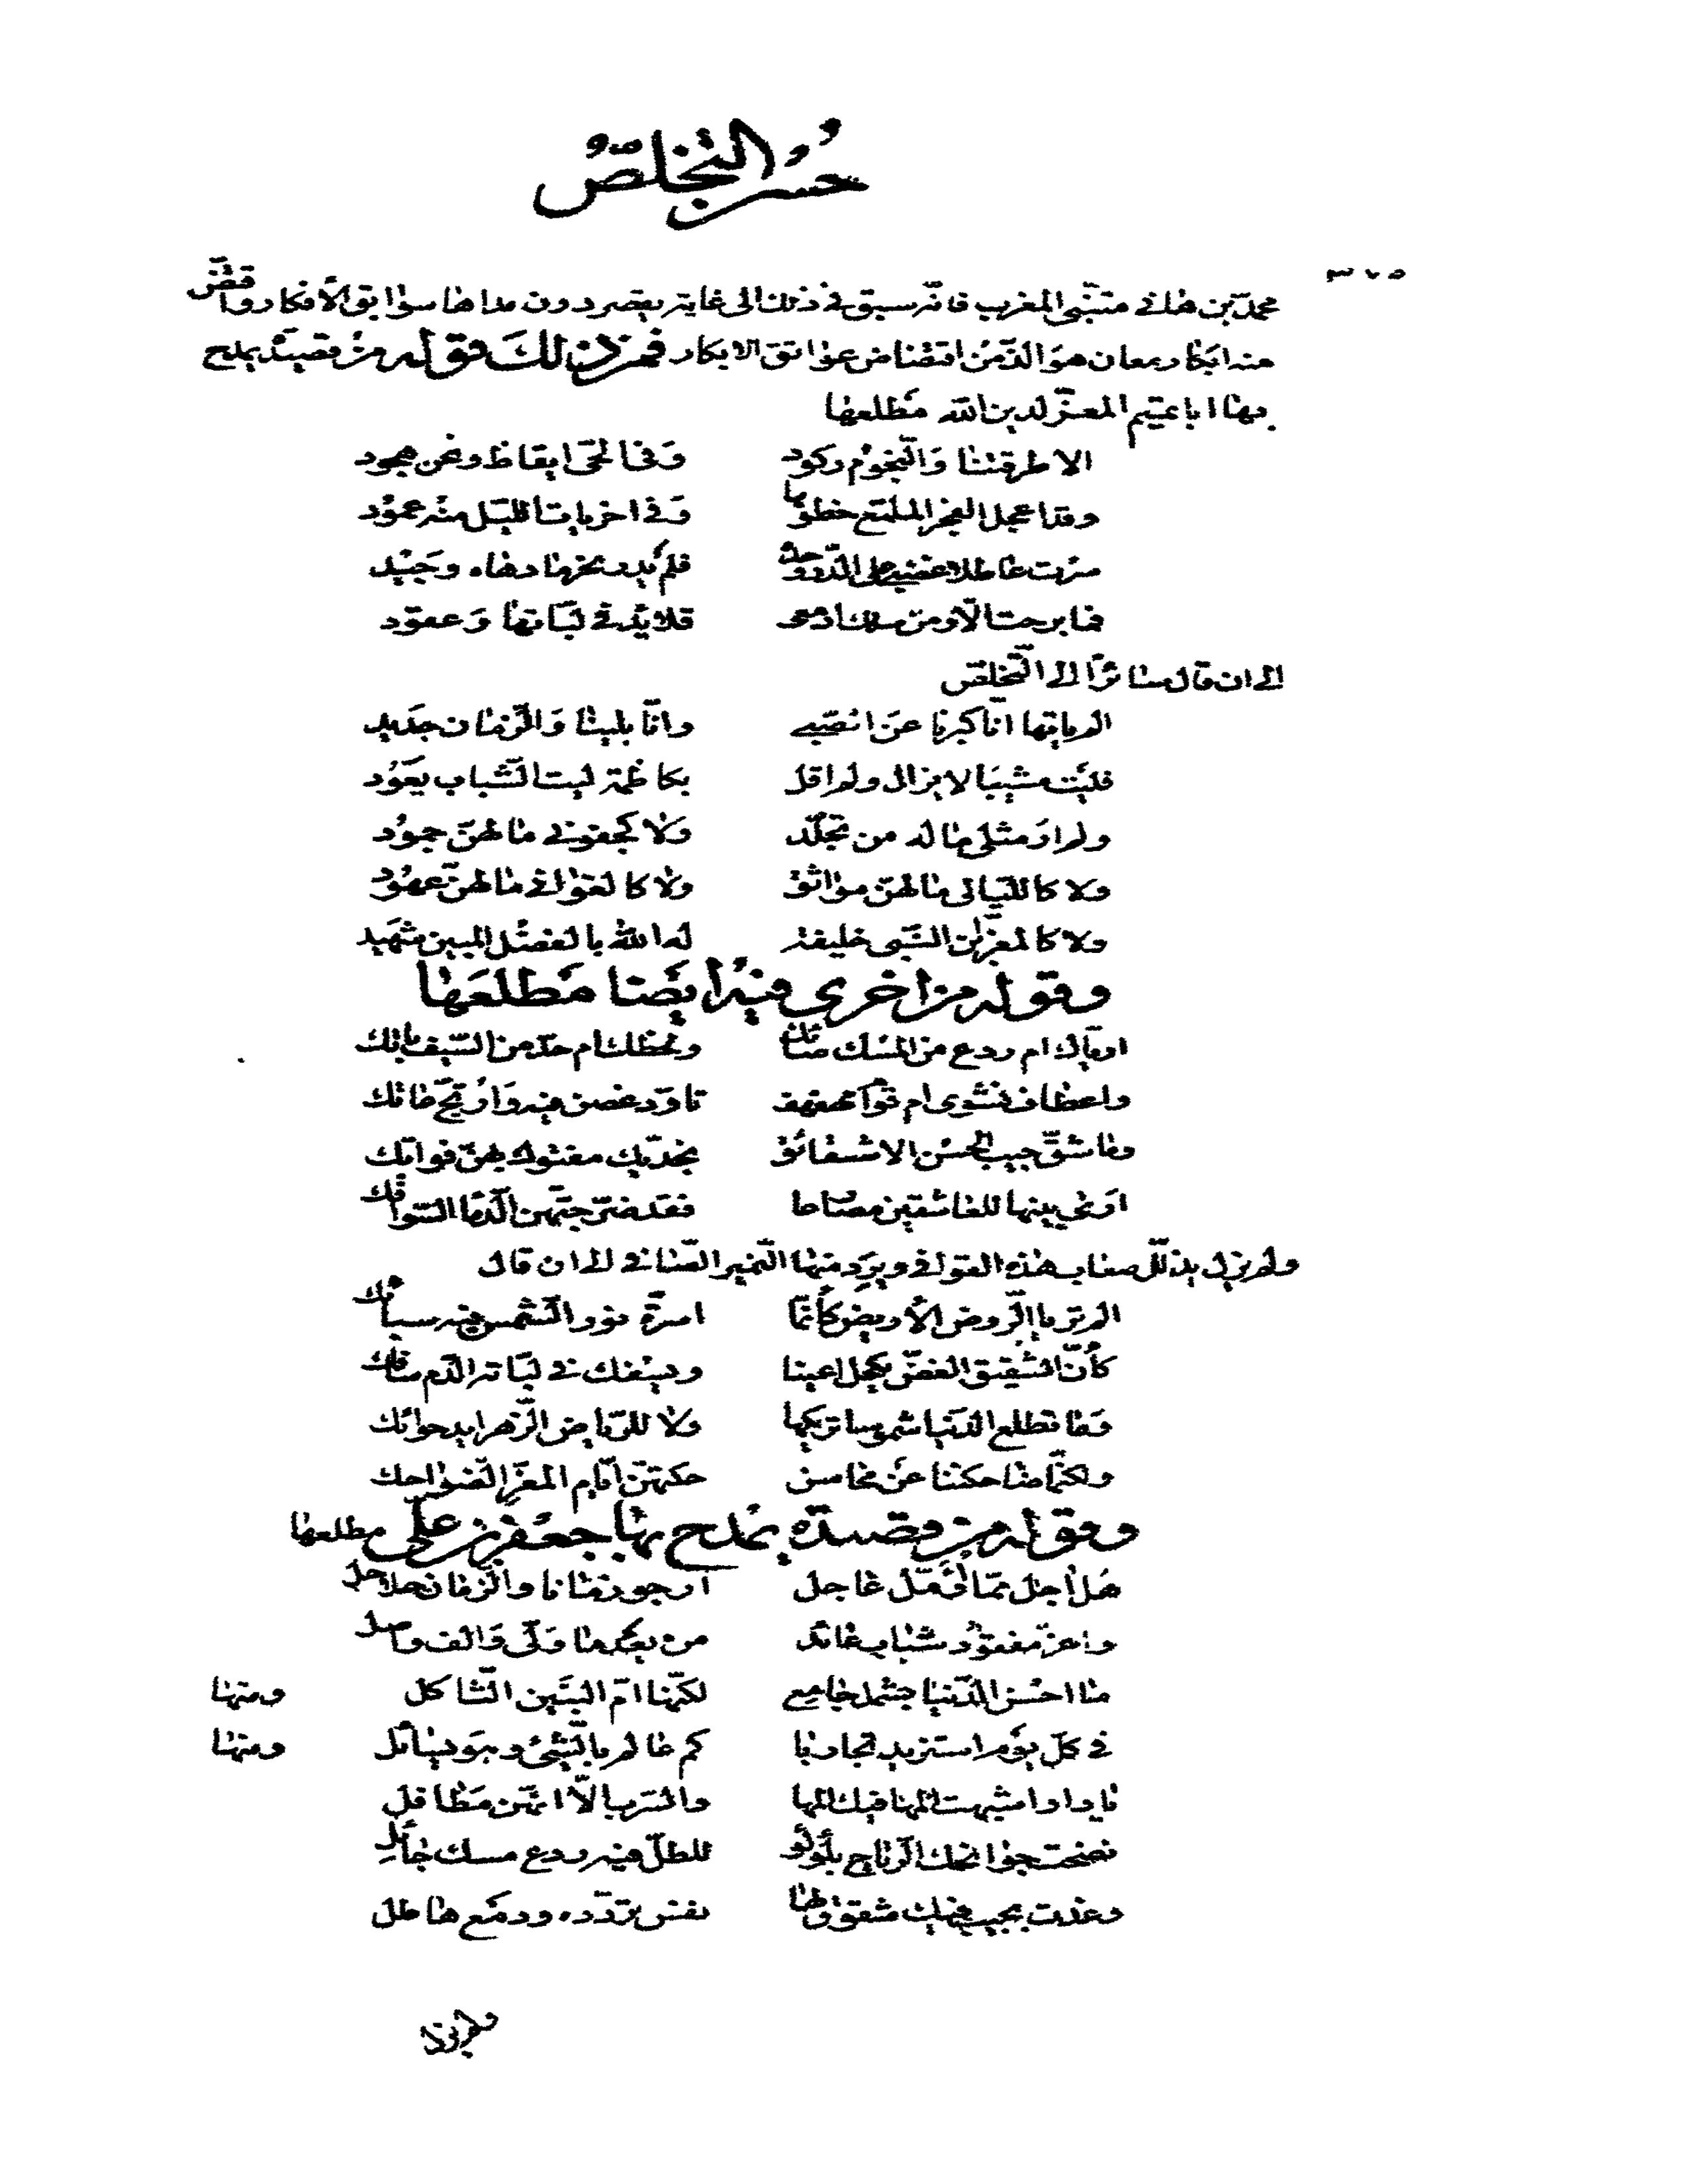 حُسن التخلّصُ
٣٧٥
محمّد بن هانئ متنبّي المغرب فانّه سبق في ذلك الى غاية يقصر دون مداها سوابق الأفكار واقتضّ
منه ابكار معان هو الذّ من اقتضاض عواتق الابكار فمن ذلك قوله من قصيدة يمدح
بها ابا تميم المعزّ لدين الله مطلعها
الا طرقتنا وَالنّجوم ركود وَفي الحَيّ ايقاظ ونحن هجود
وقد اعجل الفجر الملمّع خطوها وَفي اخريات الليل منه عمود
سرت عاطلا غضبى على الدّرّ وحده فلم يدر نحر ما دهاه وجَيْد
فما برحت الّا ومن سلك ادمعى قلائد في لبّاتها وَعقود
الى ان قال سائرًا الى التّخلّص
الم ياتها انّا كبرنا عن الصّبى وانّا بلينا وَالزّمان جديد
فليت مشيبا لا يزال ولم اقل بكاظمة ليت الشّباب يعود
ولم ار مثلى ما له من تجلّد وَلا كجفونى ما لهنّ جمود
ولا كالليالى ما لهنّ مواثق ولا كالغوانى ما لهنّ عهود
ولا كالمعزّ ابن النّبى خليفة له الله بالفضل المبين شهيد
وقوله من اخرى فيه ايضا مَطلعَها
اريّاك ام ردع من المسك صائك ولحظك ام حدّ من السّيف باتك
واعطاف نشوى ام قوام مهفهف تاوّد غصن فيه وَارتجّ عاتك
وما شقّ جيب الحسن الا شقائق بخدّيك مفتوك بهنّ فواتك
ارى بينها للعاشقين مصارعا فقد ضرّجتهن الدّما السّوافك
ولم يزل يذلّل صعاب هذه القوافى ويرد منها النّمير الصّافى الى ان قال
الم تر يا الرّوض الأريض كأنّما اسرّة نور الشّمس فيه سبائك
كأنّ الشقيق الغضّ يكحل اعينا ويسفك في لبّاته الدّم سافك
وَما تطلع الدّنيا شموسا تريكها ولا للرّياض الزّهر ايد حوائك
ولكنّما ضاحكننا عن محاسن حكتهنّ ايّام المعزّ الضّواحك
وقوله من قصيدة يمدح بها جعفر بن على مطلعها
هَل اجل ممّا اؤمّل عاجل ارجو زمانا والزّمان حلاحل
واعزّ مفقود شباب عائد من بعد ما وَلّى وَالف واصل
ما احسن الدّنيا بشمل جامع لكنّها امّ البنين الثّاكل ومنها
في كلّ يوم استزيد تجاربا كم عالم بالشّئ وهو يسائل ومنها
يا دار اشبهت المها فيك المها والسّرب الّا انّهن مطافل
نضحت جوانحك الرّياح بلؤلؤ للطلّ فيه ردع مسك جائل
وغدت بجيب فيك مشقوق لها نفس تردّده ودمع هاطل